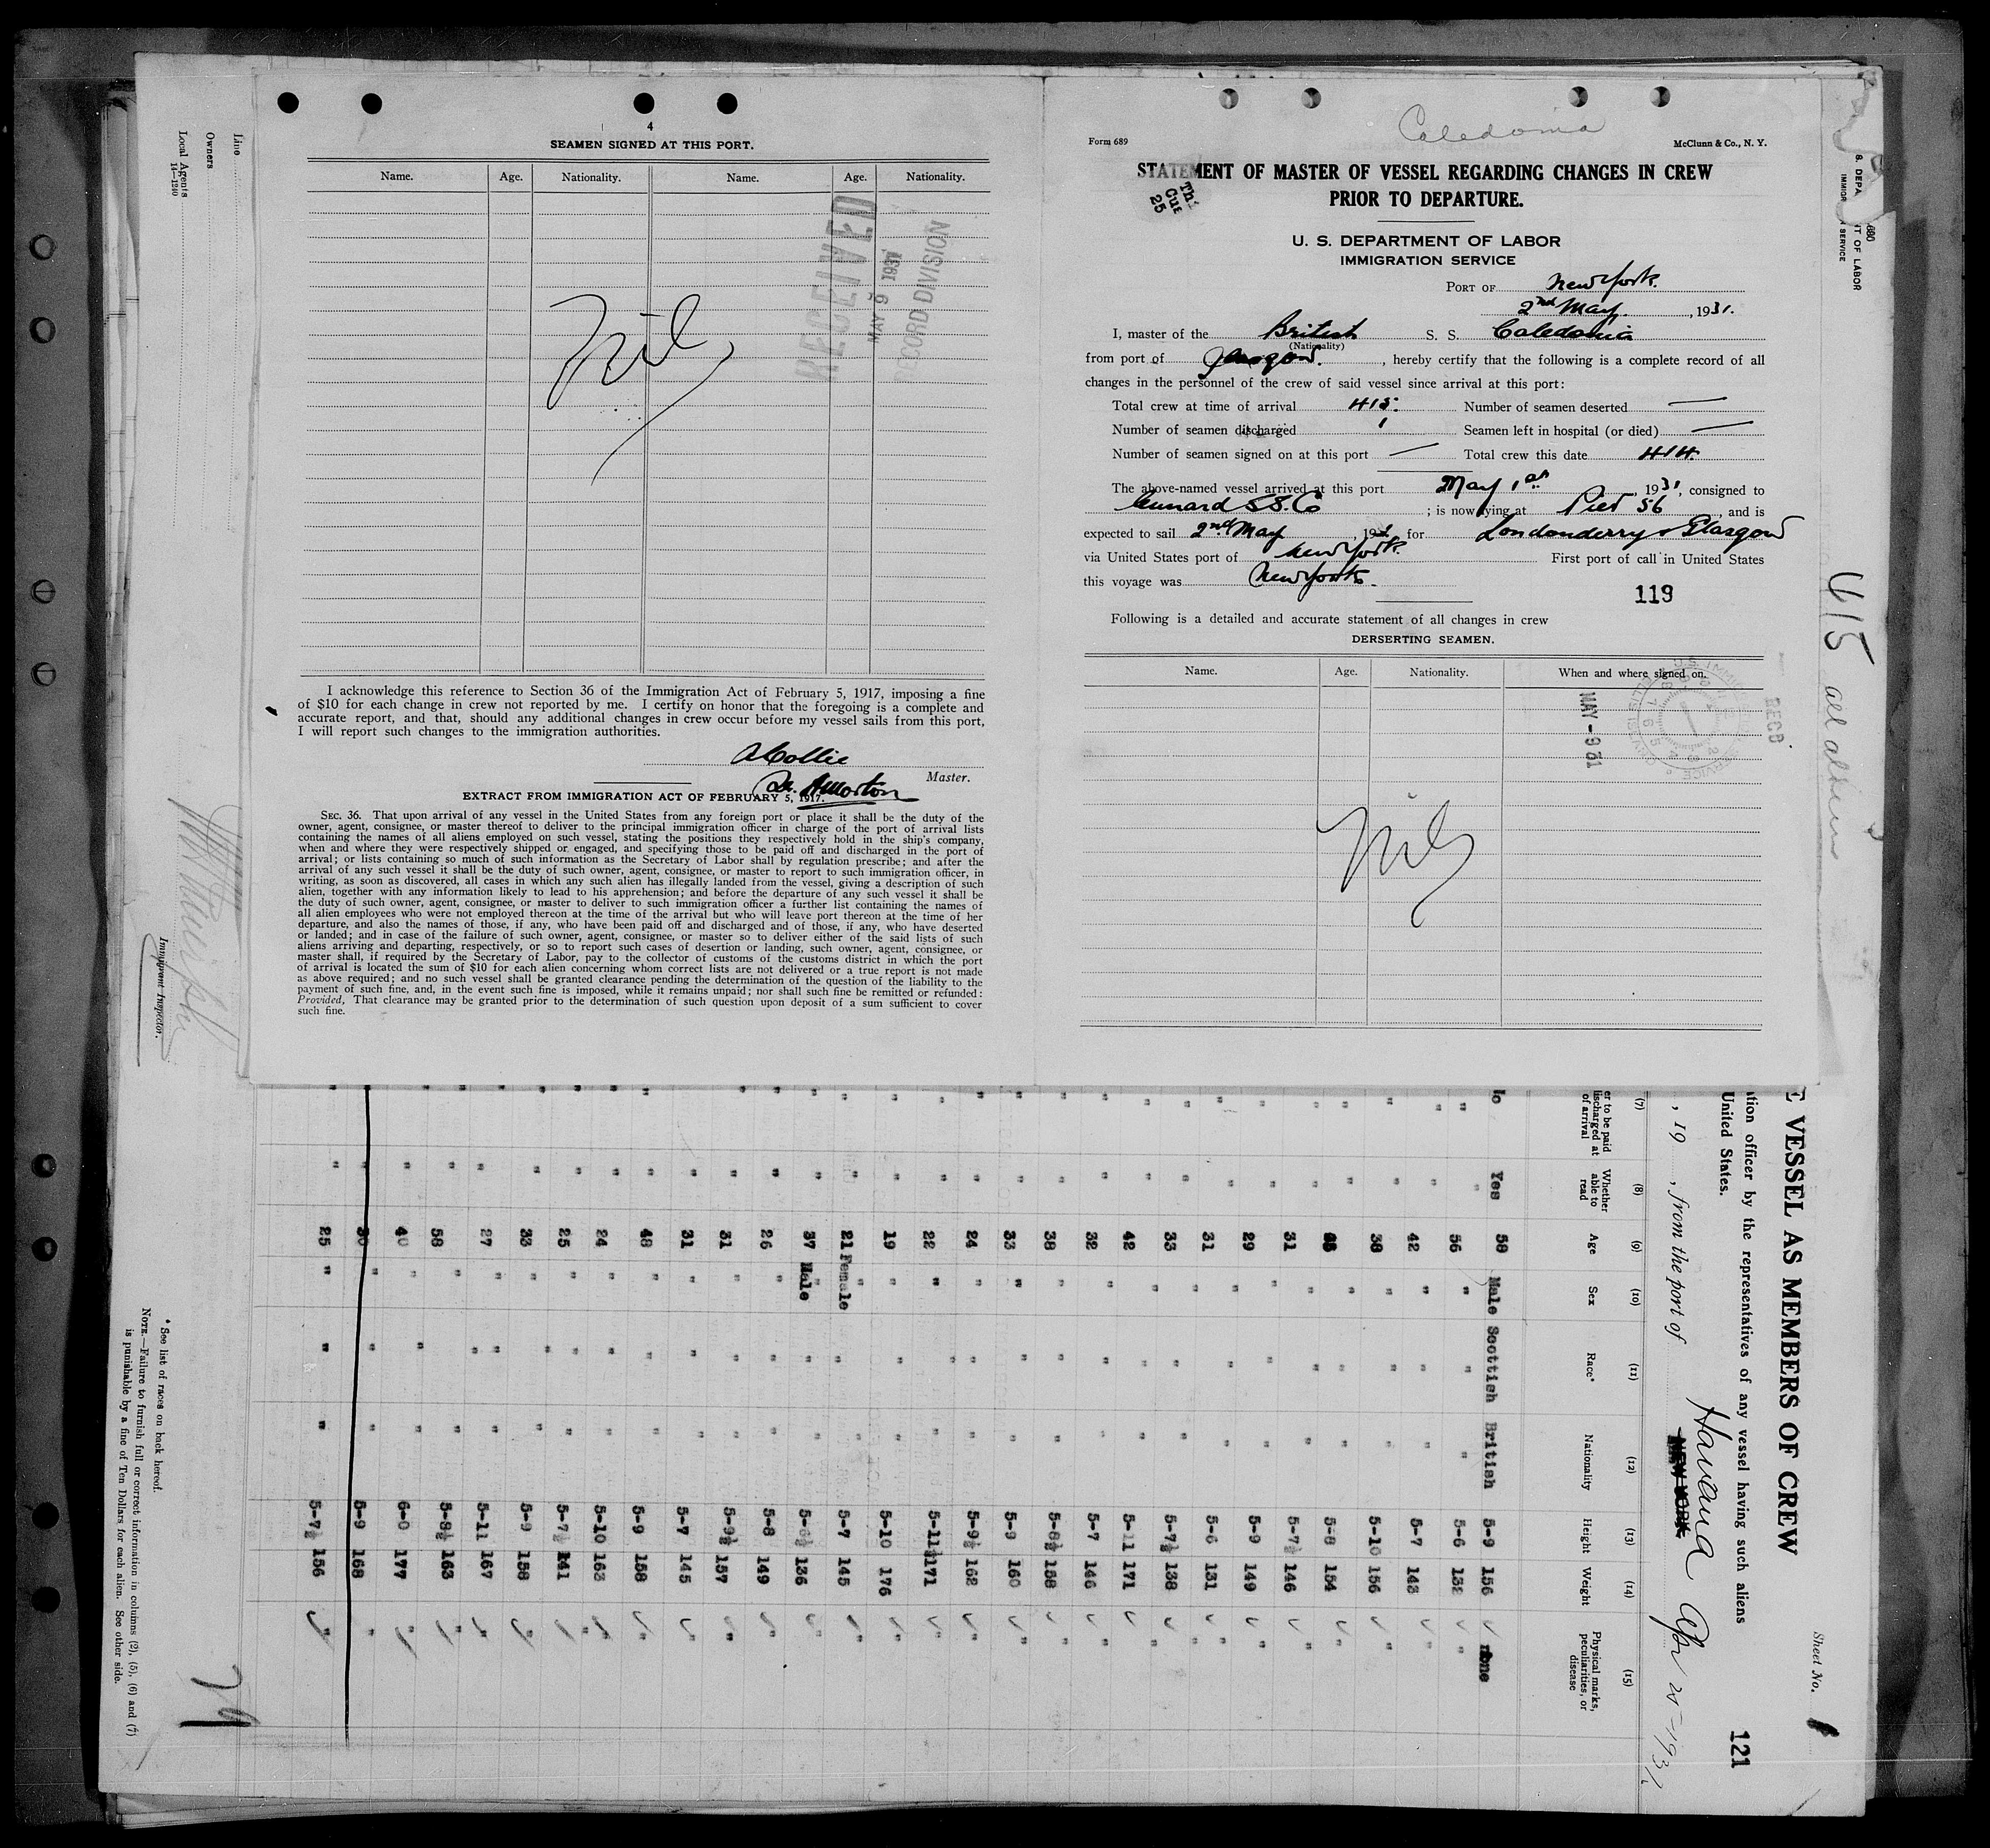 4
SEAMEN SIGNED AT THIS PORT.
Name. Age. Nationality. Name. Age. Nationality.
RECEIVED
MAY 9 1931
RECORD DIVISION
Nil
I acknowledge this reference to Section 36 of the Immigration Act of February 5, 1917, imposing a fine
of $10 for each change in crew not reported by me. I certify on honor that the foregoing is a complete and
accurate report, and that, should any additional changes in crew occur before my vessel sails from this port,
I will report such changes to the immigration authorities.
A Collie
Master.
EXTRACT FROM IMMIGRATION ACT OF FEBRUARY 5, 1917.
SEC. 36. That upon arrival of any vessel in the United States from any foreign port or place it shall be the duty of the
owner, agent, consignee, or master thereof to deliver to the principal immigration officer in charge of the port of arrival lists
containing the names of all aliens employed on such vessel, stating the positions they respectively hold in the ship's company,
when and where they were respectively shipped or engaged, and specifying those to be paid off and discharged in the port of
arrival; or lists containing so much of such information as the Secretary of Labor shall by regulation prescribe; and after the
arrival of any such vessel it shall be the duty of such owner, agent, consignee, or master to report to such immigration officer, in
writing, as soon as discovered, all cases in which any such alien has illegally landed from the vessel, giving a description of such
alien, together with any information likely to lead to his apprehension; and before the departure of any such vessel it shall be
the duty of such owner, agent, consignee, or master to deliver to such immigration officer a further list containing the names of
all alien employees who were not employed thereon at the time of the arrival but who will leave port thereon at the time of her
departure, and also the names of those, if any, who have been paid off and discharged and of those, if any, who have deserted
or landed; and in case of the failure of such owner, agent, consignee, or master so to deliver either of the said lists of such
aliens arriving and departing, respectively, or so to report such cases of desertion or landing, such owner, agent, consignee, or
master shall, if required by the Secretary of Labor, pay to the collector of customs of the customs district in which the port
of arrival is located the sum of $10 for each alien concerning whom correct lists are not delivered or a true report is not made
as above required; and no such vessel shall be granted clearance pending the determination of the question of the liability to the
payment of such fine, and, in the event such fine is imposed, while it remains unpaid; nor shall such fine be remitted or refunded:
Provided, That clearance may be granted prior to the determination of such question upon deposit of a sum sufficient to cover
such fine.
Caledonia
Form 689 McClunn & Co., N. Y.
STATEMENT OF MASTER OF VESSEL REGARDING CHANGES IN CREW
PRIOR TO DEPARTURE.
U. S. DEPARTMENT OF LABOR
IMMIGRATION SERVICE
PORT OF New York.
2nd May, 1931.
I, master of the British S. S. Caledonia
(Nationality)
from port of Glasgow., hereby certify that the following is a complete record of all
changes in the personnel of the crew of said vessel since arrival at this port:
Total crew at time of arrival 415. Number of seamen deserted —
Number of seamen discharged 1 Seamen left in hospital (or died) —
Number of seamen signed on at this port — Total crew this date 414.
The above-named vessel arrived at this port May 1st, 1931, consigned to
Cunard S.S. Co; is now lying at Pier 56, and is
expected to sail 2nd May, 1931, for Londonderry & Glasgow
via United States port of New York. First port of call in United States
this voyage was New York.
119
Following is a detailed and accurate statement of all changes in crew
DERSERTING SEAMEN.
Name. Age. Nationality. When and where signed on.
MAY -9 31
RECD
Nil
415 all aliens
Line
Owners
Local Agents
14—1240
Immigrant Inspector.
E VESSEL AS MEMBERS OF CREW
Sheet No. 1
ation officer by the representatives of any vessel having such aliens
United States.
121
, 19 , from the port of Havana Apr 25-1931
NEW YORK
(7) (8) (9) (10) (11) (12) (13) (14) (15)
er to be paid discharged at of arrival
Whether able to read
Age
Sex
Race*
Nationality
Height
Weight
Physical marks, peculiarities, or disease
Yes 58 Male Scottish British 5-9 156 none
" 56 " " " 5-6 132 "
" 42 " " " 5-7 143 "
" 38 " " " 5-10 156 "
" " " " 5-8 154 "
" 31 " " " 5-7½ 146 "
" 29 " " " 5-9 149 "
" 31 " " " 5-6 131 "
" 33 " " " 5-7½ 138 "
" 42 " " " 5-11 171 "
" 32 " " " 5-7 146 "
" 38 " " " 5-8½ 158 "
" 33 " " " 5-9 160 "
" 24 " " " 5-9½ 162 "
" 22 " " " 5-11½ 171 "
" 19 " " " 5-10 176 "
" 21 Female " " 5-7 145 "
" 37 Male " " 136 "
" 26 " " " 5-8 149 "
" 31 " " " 5-9½ 157 "
" 31 " " " 5-7 145 "
" 48 " " " 5-9 158 "
" 24 " " " 5-10 163 "
" 25 " " " 5-7½ 141 "
" 33 " " " 5-9 158 "
" 27 " " " 5-11 167 "
" 58 " " " 5-8½ 163 "
" 40 " " " 6-0 177 "
" 30 " " " 5-9 168 "
" 25 " " " 5-7½ 156 "
* See list of races on back hereof.
NOTE.—Failure to furnish full or correct information in columns (2), (5), (6) and (7)
is punishable by a fine of Ten Dollars for each alien. See other side.
29